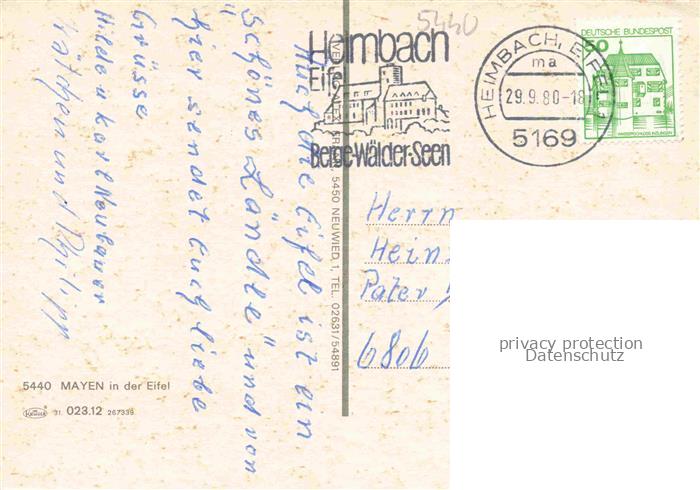 5440
Heimbach
Eifel
Berge-Wälder-Seen
HEIMBACH, EIFEL
ma
29.9.80-18
5169
DEUTSCHE BUNDESPOST
50
WASSERSCHLOSS INZLINGEN
Auch die Eifel ist ein
"Schönes Ländle" und von
hier sendet Euch liebe
Grüsse
Hilde u Karl Neubauer
Kätchen und Philipp
5450 NEUWIED 1, TEL. 02631/54891
Herrn
Hein
Pater
6806
privacy protection
Datenschutz
5440 MAYEN in der Eifel
Krüger 31 023.12 267339